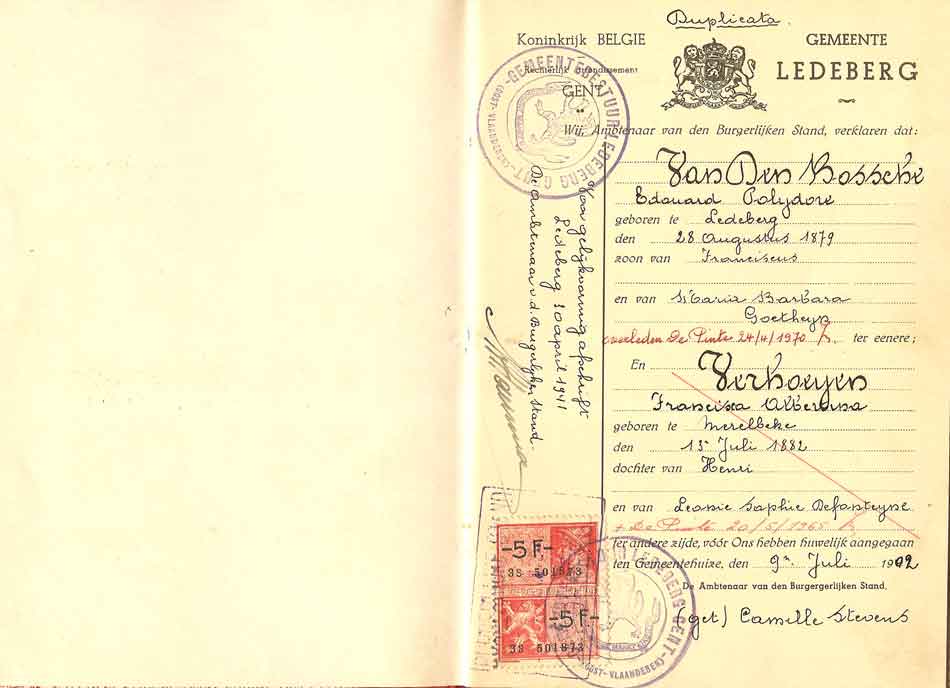 Duplicata.
Koninkrijk BELGIE
GEMEENTE
Rechterlijk Arrondissement
LEDEBERG
GENT
GEMEENTEBESTUUR LEDEBERG GENT
(OOST-VLAANDEREN)
Wij, Ambtenaar van den Burgerlijken Stand, verklaren dat:
Van Den Bossche
Edouard Polydore
geboren te Ledeberg
den 28 Augustus 1879
zoon van Franciscus
en van Maria Barbara
Goetheyn
overleden De Pinte 24/4/1970 ter eenere;
En Verhoeyen
Francisca Albertina
geboren te Merelbeke
den 15 Juli 1882
dochter van Henri
en van Leonie Sophie
+ De Pinte 20/5/1965
ter andere zijde, vóór Ons hebben huwelijk aangegaan
ten Gemeentehuize, den 9n Juli 1902
De Ambtenaar van den Burgergerlijken Stand,
(get) Camille Stevens
Voor gelijkvormig afschrift
Ledeberg 30 april 1941
De Ambtenaar v. d. Burgerlijken Stand.
-5F-
3S 501873
-5F-
3S 501873
LEDEBERG GENT
(OOST-VLAANDEREN)